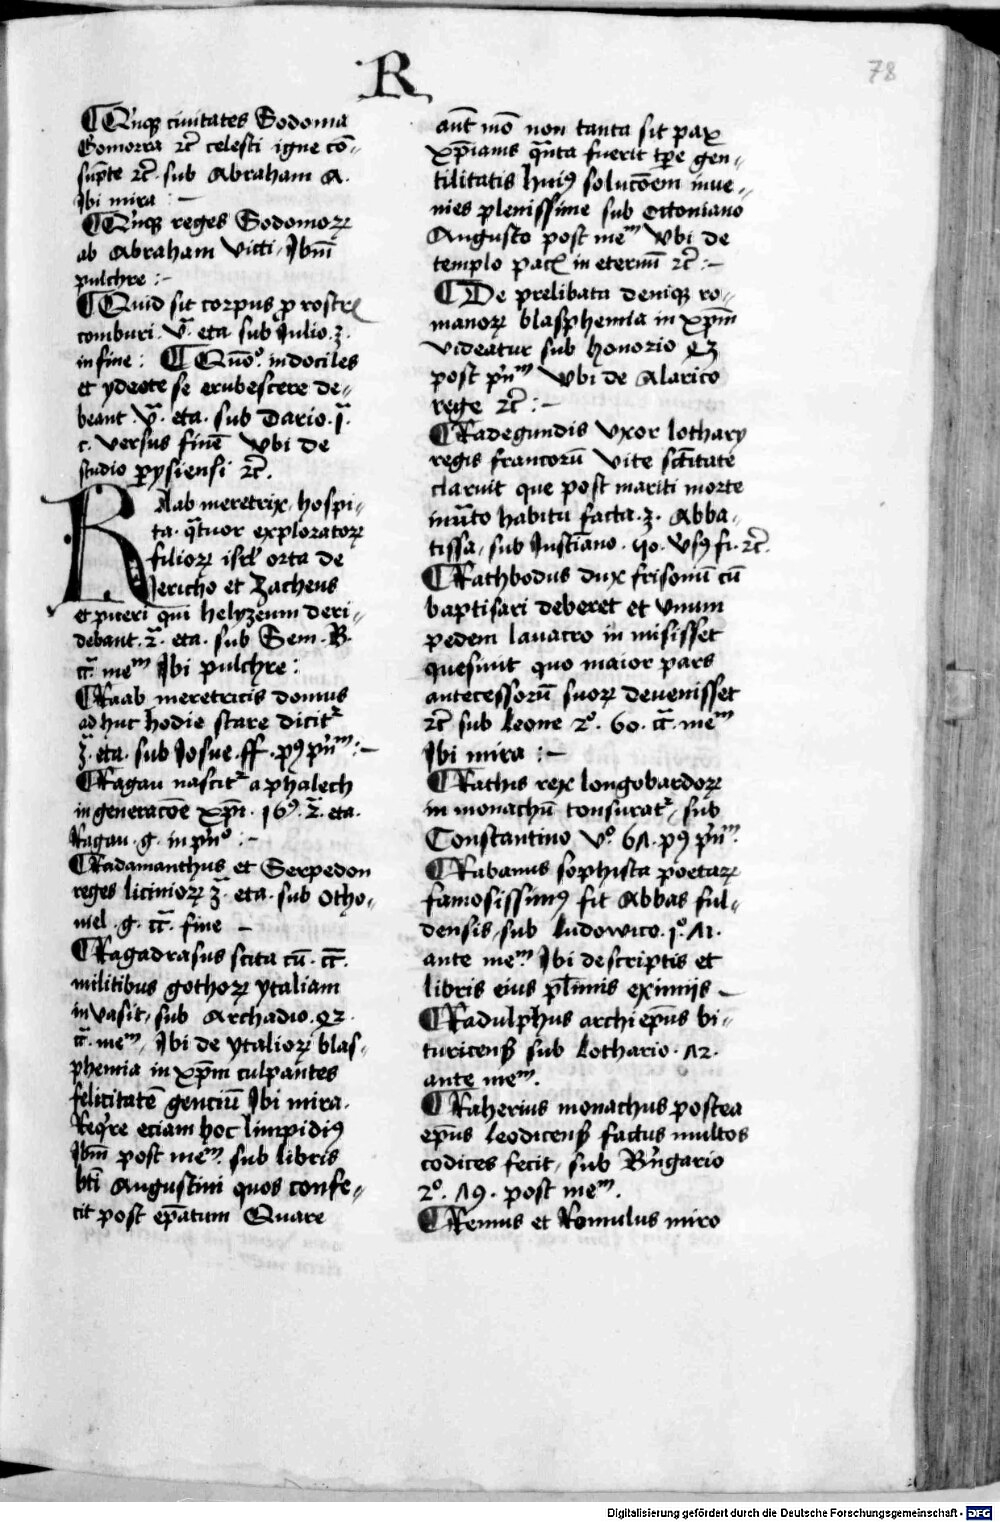 R
78
¶ Quinqꝫ ciuitates Sodoma
Gomorra ⁊c̄ celesti igne cō-
sūpte ⁊c̄. sub Abraham A.
Ibi mira :-
¶ Quinqꝫ reges Sodomoꝝ
ab Abraham victi, Ibm̄
pulchre :-
¶ Quid sit corpus
comburi. v̄. eta. sub Julio. 3.
in fine : ¶ Quōº. indociles
et ydeote se erubescere de-
beant. v̄. eta. sub Dario. j̄.
c. versus finē vbi de
studio ꝑysiensi ⁊c̄.
Raab meretrix, hospi-
ta. q̄tuor exploratoꝝ
filioꝝ isrl̄ orta de
Jericho et Zacheus
et pueri qui helyzeum deri-
debant. 2̄. eta. sub Sem. B.
c̄c̄. meᵐ Ibi pulchre :
¶ Raab meretricis domus
ad huc hodie stare dicitᷣ
3̄. eta. sub Iosue. ff. pꝰ pn̄ᵐ :-
¶ Ragau nascitᷣ a phalech
in generacōe xp̄i. 16ꝰ. 2̄. eta.
Ragau. g. in pn̄º :-
¶ Radamanthus et Serpedon
reges licinioꝝ 3̄. eta. sub Otho-
niel. g. c̄c̄. fine -
¶ Ragadrasus scita cū. c̄c̄.
militibus gothoꝝ ytaliam
invasit, sub Archadio.
c̄c̄. meᵐ, Ibi de ytalioꝝ blas-
phemia in xp̄m culpantes
felicitatē genciū Ibi mira.
Reqͥre eciam hoc limpidiꝰ
Ibm̄ post meᵐ. sub libris
bt̄i Augustini quos confe-
cit post ep̄atum Quare
aut̄ mō non tanta sit pax
xp̄ianis q̄nta fuerit tp̄e gen-
tilitatis huiꝰ solucōem inue-
nies plenissime sub Octoniano
Augusto post meᵐ vbi de
templo pacꝭ in eternū ⁊c̄ :-
¶ De prelibata deniqꝫ ro-
manoꝝ blasphemia in xp̄m
videatur sub honorio
post pn̄ᵐ vbi de Alarico
rege ⁊c̄ :-
¶ Radegundis vxor lothary
regis francorū vite sc̄titate
claruit que post mariti morte
mutato habitu facta. 3. Abba-
tissa, sub Justiano. 40. vsꝰ fi. ⁊c̄.
¶ Rathbodus dux frisonū cū
baptisari deberet et vnum
pedem lauacro in misisset
quesiuit quo maior pars
antecessorū suoꝝ devenisset
⁊c̄ sub Leone 2º. 60. c̄c̄. meᵐ
Ibi mira :-
¶ Rathis rex longobardoꝝ
in monachū tonsuratᷣ, sub
Constantino vº. 61. pꝰ pn̄ᵐ.
¶ Rabanus sophista poetaꝝ
famosissimꝰ fit Abbas ful-
densis, sub Ludowico. jº. 71.
ante meᵐ. Ibi de scriptis et
libris eius pl̄imis eximijs -
¶ Radulphus archiep̄us bi-
turicensꝭ sub Lothario. 72.
ante meᵐ.
¶ Raherius monachus postea
ep̄us Leodicensꝭ factus multos
codices fecit, sub Bn̄gario
2º. 79. post meᵐ.
¶ Remus et Romulus miro
Digitalisierung gefördert durch die Deutsche Forschungsgemeinschaft - DFG